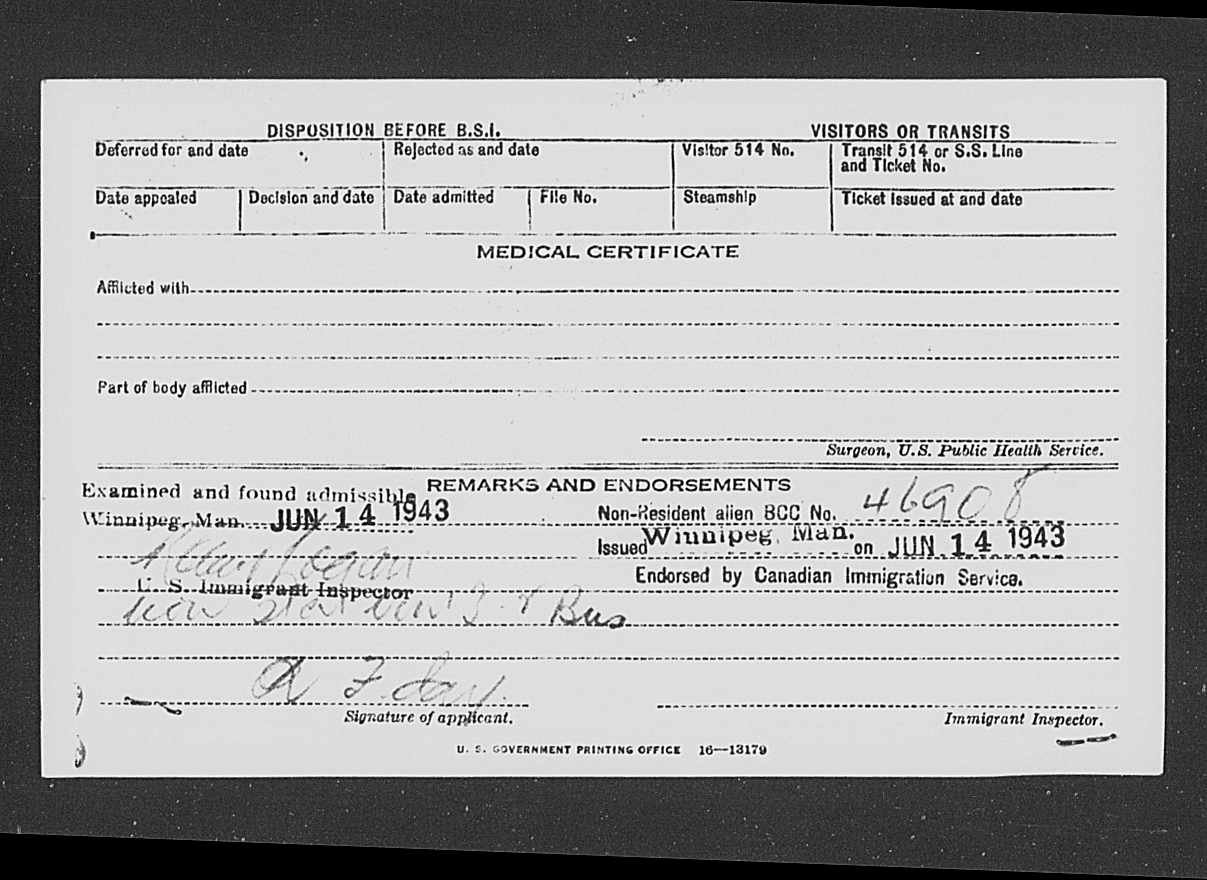 DISPOSITION BEFORE B.S.I. VISITORS OR TRANSITS
Deferred for and date Rejected as and date Visitor 514 No. Transit 514 or S.S. Line
and Ticket No.
Date appealed Decision and date Date admitted File No. Steamship Ticket issued at and date
MEDICAL CERTIFICATE
Afflicted with
Part of body afflicted
Surgeon, U.S. Public Health Service.
REMARKS AND ENDORSEMENTS
Examined and found admissible
Winnipeg, Man. JUN 14 1943
Non-Resident alien BCC No. 46908
Issued Winnipeg, Man. on JUN 14 1943
Endorsed by Canadian Immigration Service.
Logan
U. S. Immigrant Inspector
Bus
F. Day.
Signature of applicant. Immigrant Inspector.
U. S. GOVERNMENT PRINTING OFFICE 16—13179